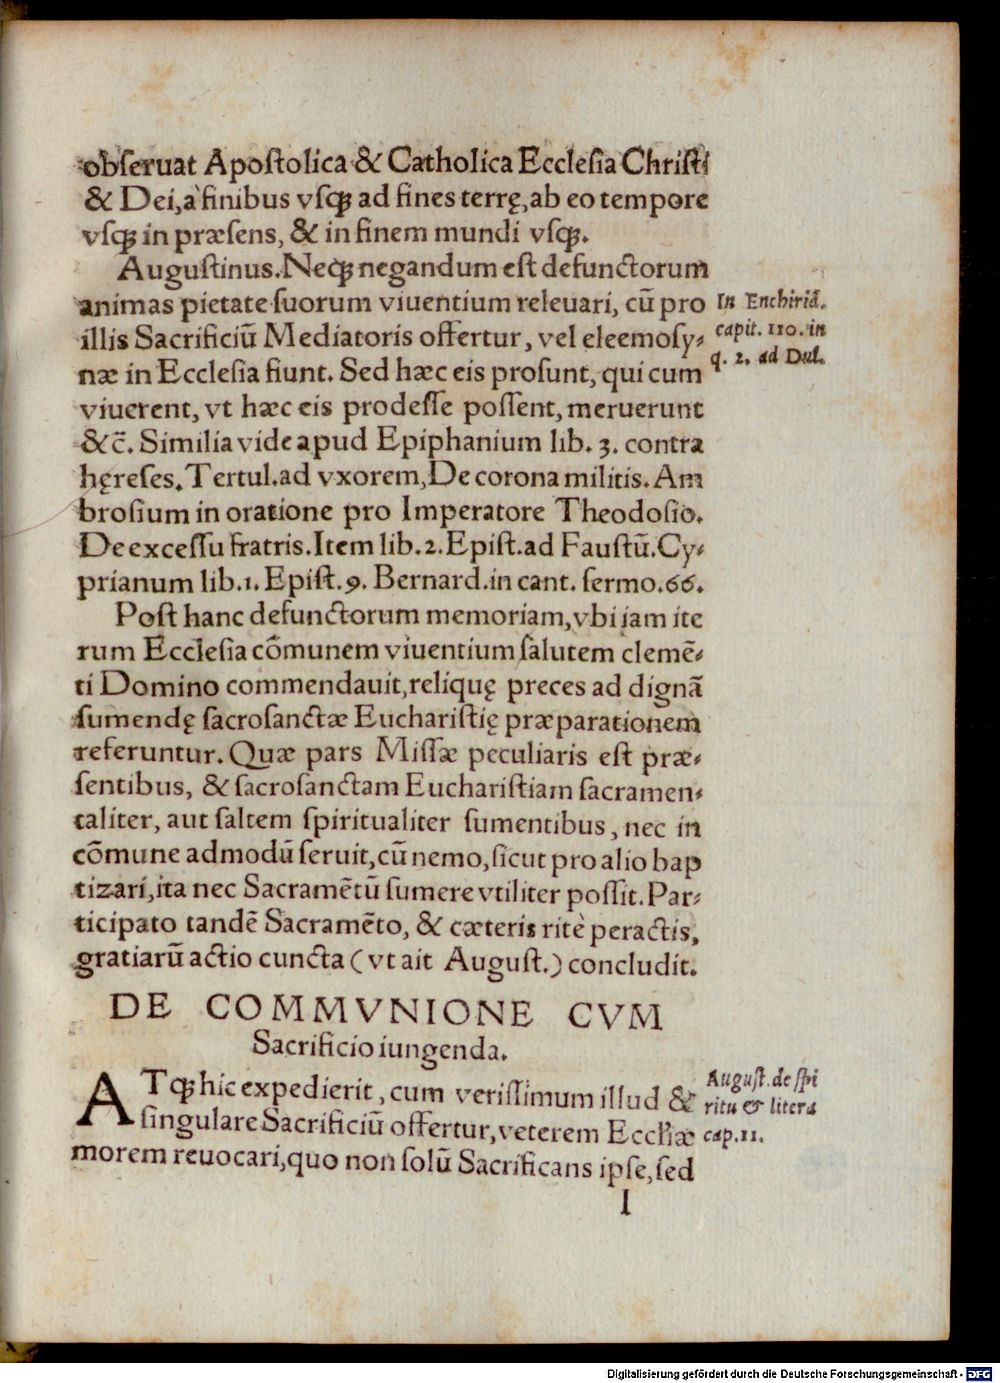 obſeruat Apoſtolica & Catholica Eccleſia Chriſti
& Dei, à finibus vſq; ad fines terrę, ab eo tempore
vſq; in præſens, & in finem mundi vſq;.
Auguſtinus. Neq; negandum eſt defunctorum
animas pietate ſuorum viuentium releuari, cū pro
illis Sacrificiū Mediatoris offertur, vel eleemoſy-
næ in Eccleſia fiunt. Sed hæc eis proſunt, qui cum
viuerent, vt hæc eis prodeſſe poſſent, meruerunt
&c̄. Similia vide apud Epiphanium lib. 3. contra
hęreſes. Tertul. ad vxorem, De corona militis. Am
broſium in oratione pro Imperatore Theodoſio.
De exceſſu fratris. Item lib. 2. Epiſt. ad Fauſtū. Cy-
prianum lib. 1. Epiſt. 9. Bernard. in cant. ſermo. 66.
In Enchirid.
capit. 110. in
q. 2. ad Dul.
Poſt hanc defunctorum memoriam, vbi iam ite
rum Eccleſia cōmunem viuentium ſalutem clemē-
ti Domino commendauit, reliquę preces ad dignā
ſumendę ſacroſanctæ Euchariſtię præparationem
referuntur. Quæ pars Miſſæ peculiaris eſt præ-
ſentibus, & ſacroſanctam Euchariſtiam ſacramen-
taliter, aut ſaltem ſpiritualiter ſumentibus, nec in
cōmune admodū ſeruit, cū nemo, ſicut pro alio bap
tizari, ita nec Sacramētū ſumere vtiliter poſſit. Par-
ticipato tandē Sacramēto, & cæteris ritè peractis,
gratiarū actio cuncta (vt ait Auguſt.) concludit.
DE COMMVNIONE CVM
Sacrificio iungenda.
ATq; hic expedierit, cum veriſſimum illud &
ſingulare Sacrificiū offertur, veterem Eccl̄iæ
morem reuocari, quo non ſolū Sacrificans ipſe, ſed
Auguſt. de ſpi
ritu & litera
cap. 11.
I
Digitalisierung gefördert durch die Deutsche Forschungsgemeinschaft - DFG